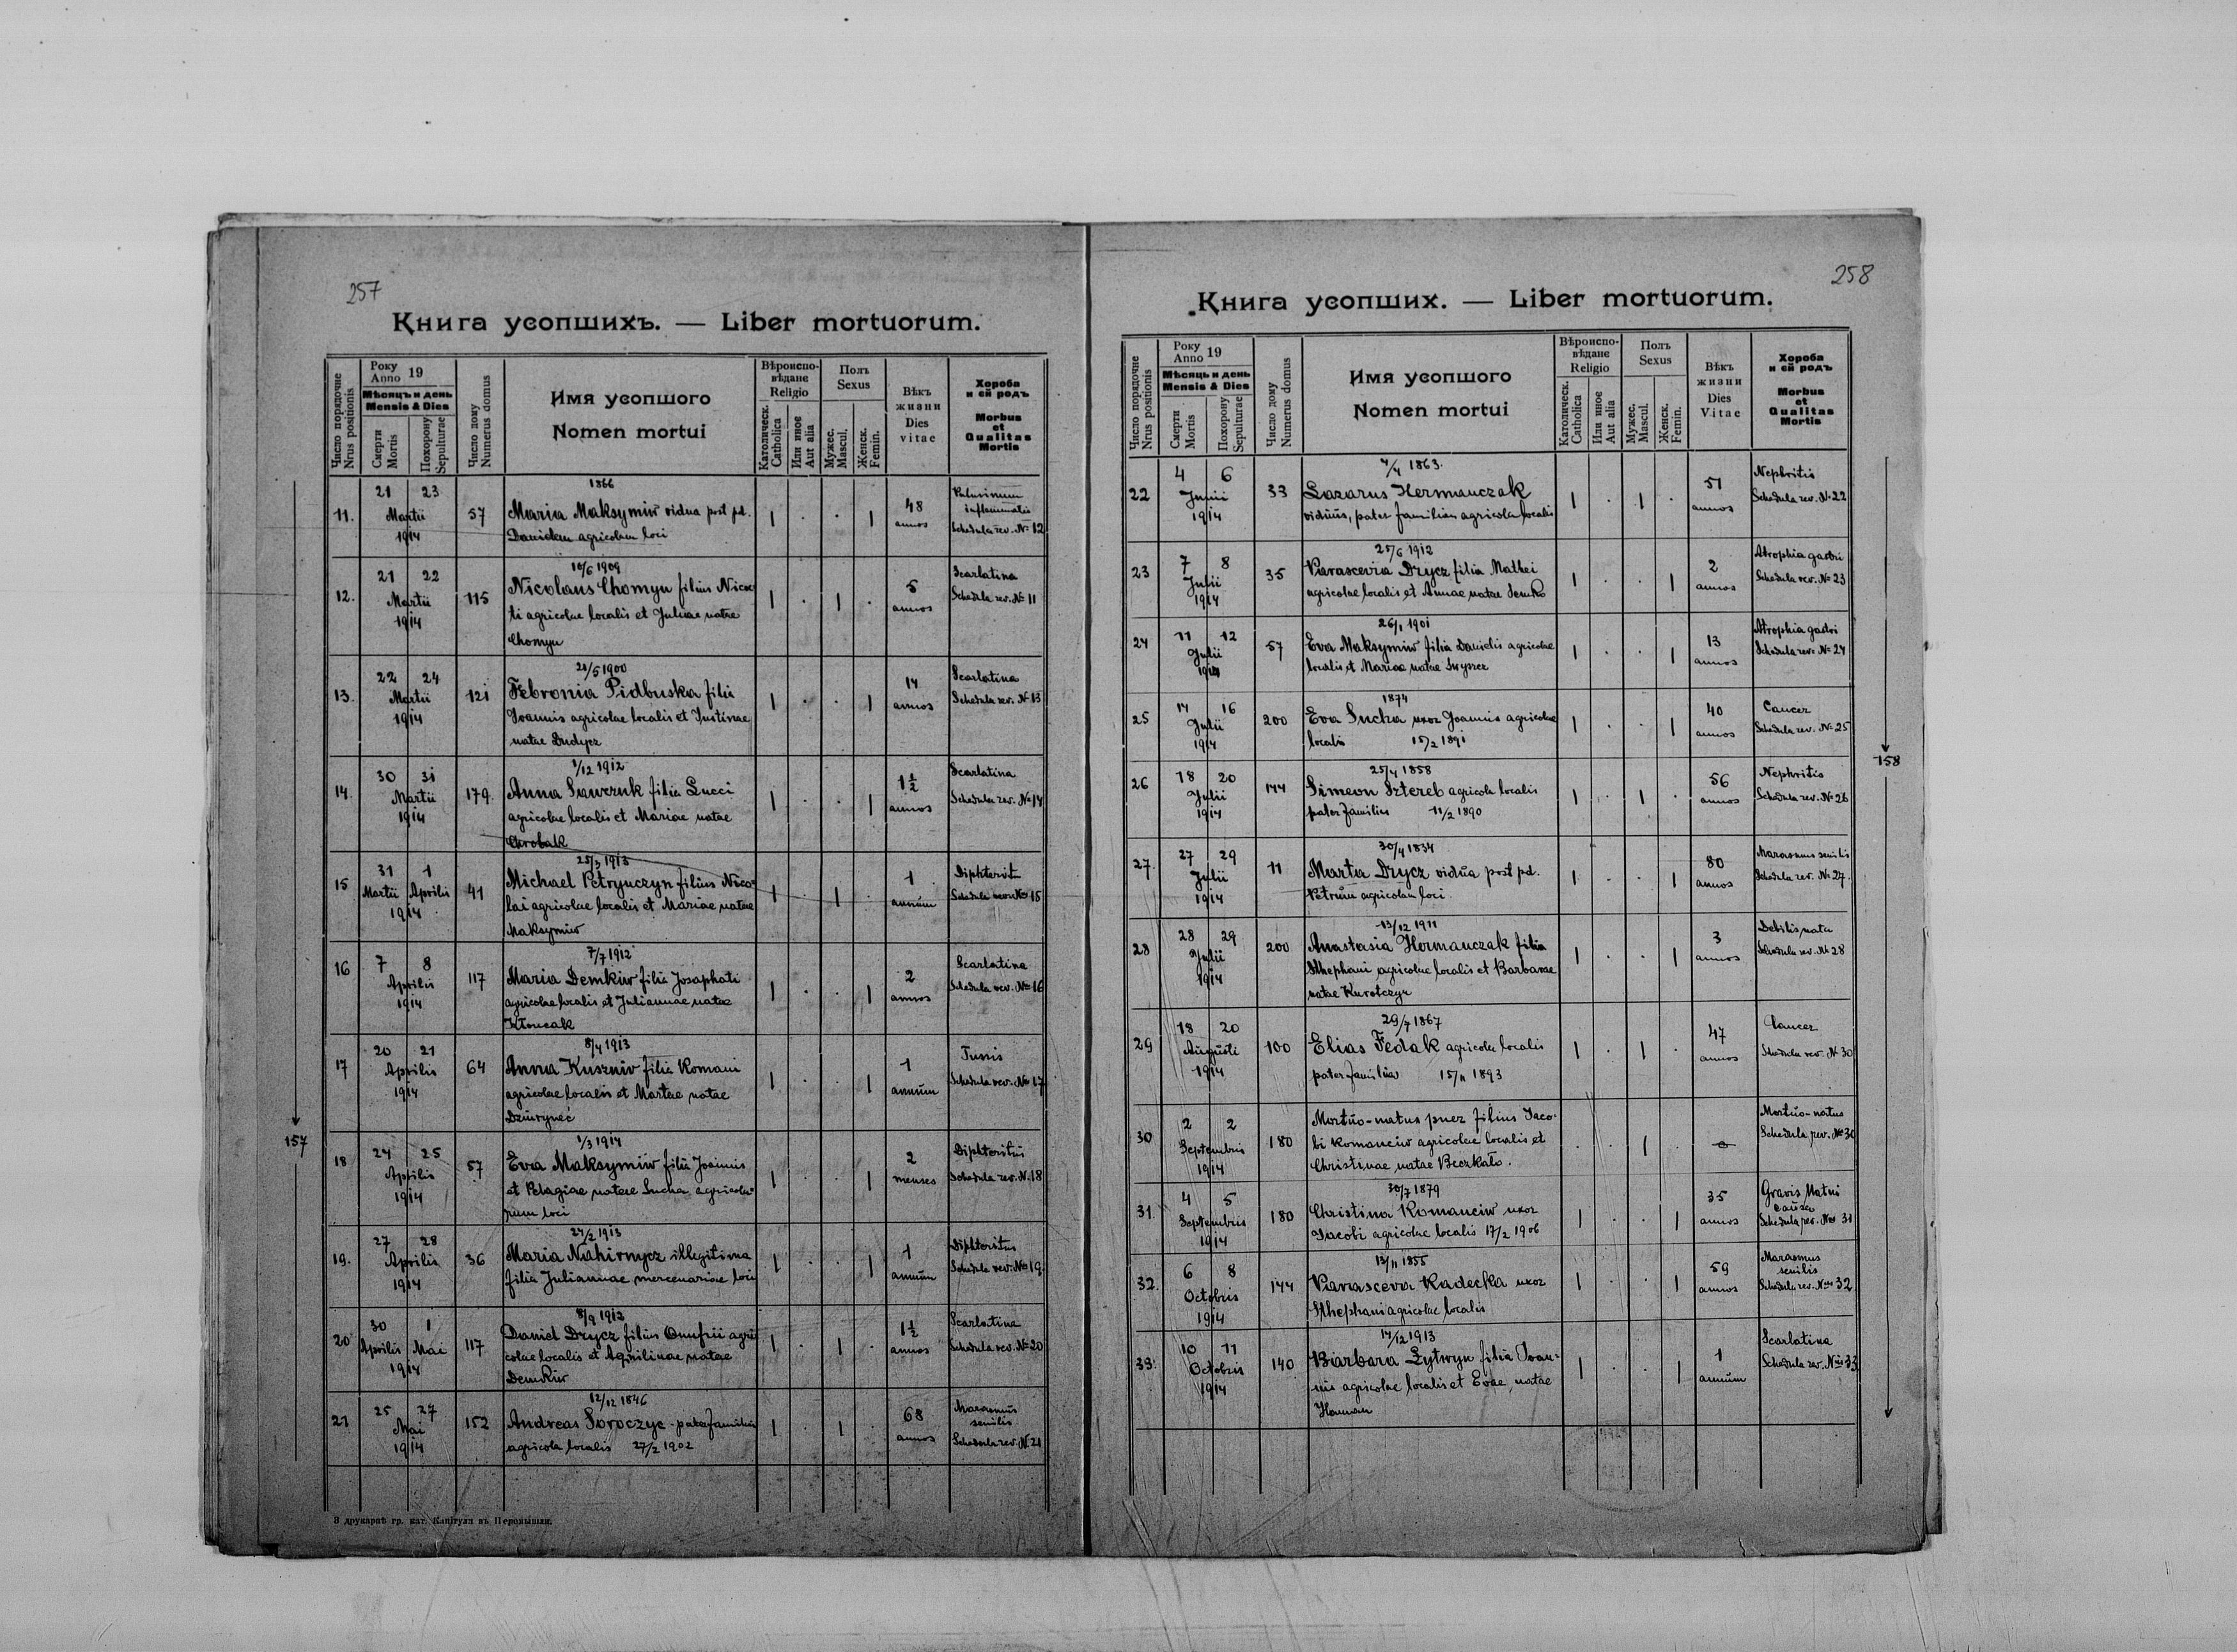 257
Книга усопшихъ. — Liber mortuorum.
Число порядочне
Nrus positionis
Року
Anno 19
Мѣсяцъ и день
Mensis & Dies
Смерти
Mortis
Похорону
Sepulturae
Число дому
Numerus domus
Имя усопшого
Nomen mortui
Вѣроиспо-
вѣдане
Religio
Католическ.
Catholica
Или иное
Aut alia
Полъ
Sexus
Мужес.
Mascul.
Женск.
Femin.
Вѣкъ
жизни
Dies
vitae
Хороба
и єй родъ
Morbus
et
Qualitas
Mortis
11. 21 23 Martii 1914 57
1866
Maria Maksymiw vidua post pd.
Danidem agricolam loci
48 annos
inflammatio
Schedula rev. No 12
12. 21 22 Martii 1914 115
10/6 1909
Nicolaus Chomyn filius Nico-
li agricolae localis et Juliae natae
Chomyn
5 annos
Scarlatina
Schedula rev. No 11
13. 22 24 Martii 1914 121
20/5 1900
Febronia Pidbuska filia
Joannis agricolae localis et Justinae
natae Dudycz
14 annos
Scarlatina
Schedula rev. No 13
14. 30 31 Martii 1914 179
1/12 1912
Anna Sawczuk filia Lucci
agricolae localis et Mariae natae
Chrobak
1½ annos
Scarlatina
Schedula rev. No 14
15 31 Martii 1 Aprilis 1914 41
25/3 1913
Michael Petrynczyn filius Nico-
lai agricolae localis et Mariae natae
Maksymiw
1 annum
Diphterit
Schedula No 15
16 7 8 Aprilis 1914 117
7/7 1912
Maria Demkiw filia Josaphati
agricolae localis et Juliannae natae
2 annos
Scarlatina
Schedula rev. No 16
17 20 21 Aprilis 1914 64
8/4 1913
Anna Kuszniw filia Romani
agricolae localis et Martae natae
1 annum
Tussis
Schedula rev. No 17
18 24 25 Aprilis 1914 57
1/3 1914
Eva Maksymiw filia Joannis
et Pelagiae natae Sucha agricola-
rum loci
2 menses
Diphteritis
Schedula rev. N. 18
19. 27 28 Aprilis 1914 36
24/2 1913
Maria Nahirnycz illegitima
filia Juliannae mercenariae loci
1 annum
Diphteritus
Schedula rev. No 19
20 30 Aprilis 1 Mai 1914 117
8/9 1913
Daniel Drycz filius Onufrii agri
colae localis et Aquilinae natae
Demkiw
1½ annos
Scarlatina
Schedula rev. No 20
21 25 27 Mai 1914 152
12/12 1846
Andreas Soroczyc - pater familias
agricola localis 27/2 1902
68 annos
Marasmus
senilis
Schedula rev. N. 21
157
В друкарнѣ гр. кат. Капітули въ Перемышли.
258
Книга усопших. — Liber mortuorum.
Число порядочне
Nrus positionis
Року
Anno 19
Мѣсяць и день
Mensis & Dies
Смерти
Mortis
Похорону
Sepulturae
Число дому
Numerus domus
Имя усопшого
Nomen mortui
Вѣроиспо-
вѣдане
Religio
Католическ.
Catholica
Или иное
Aut alia
Полъ
Sexus
Мужес.
Mascul.
Женск.
Femin.
Вѣкъ
жизни
Dies
Vitae
Хороба
и єй родъ
Morbus
et
Qualitas
Mortis
22 4 6 Junii 1914 33
4/4 1863.
Lazarus Hermanczak
viduus, pater familias agricola localis
51 annos
Nephritis
Schedula rev. No 22
23 7 8 Julii 1914 35
25/6 1912
Parascevia Drycz filia Mathei
agricolae localis et Annae natae Semko
2 annos
Atrophia gastri
Schedula rev. No 23
24 11 12 Julii 1914 57
26/1 1901
Eva Maksymiw filia Danielis agricolae
localis et Mariae natae
13 annos
Atrophia gastri
Schedula rev. No 24
25 14 16 Julii 1914 200
1874
Eva Sucha uxor Joannis agricolae
localis 15/2 1891
40 annos
Cancer
Schedula rev. No 25
26 18 20 Julii 1914 144
25/4 1858
Simeon Sztereb agricola localis
pater familias 11/2 1890
56 annos
Nephritis
Schedula rev. No 26
27 27 29 Julii 1914 11
30/4 1834
Marta Drycz vidua post pd.
Petrum agricolam loci.
80 annos
Marasmus senilis
Schedula rev. No 27.
28 28 29 Julii 1914 200
13/12 1911
Anastasia Hermanczak filia
Sthephani agricolae localis et Barbarae
natae Kurotczyn
3 annos
Debilis nata
Schedula rev. No 28
29 18 20 Augusti 1914 100
29/7 1867
Elias Fedak agricola localis
pater familias 15/11 1893
47 annos
Cancer
Schedula rev. N 30
30 2 2 Septembris 1914 180
Mortuo-natus puer filius Jaco-
bi Romanciw agricolae localis et
Christinae natae Beczkało.
Mortuo-natus
Schedula rev. No 30
31. 4 5 Septembris 1914 180
30/7 1879
Christina Romanciw uxor
Jacobi agricolae localis 17/2 1906
35 annos
Gravis Matri
causa
Schedula rev. Nro 31
32. 6 8 Octobris 1914 144
13/11 1855
Parasceva Radecka uxor
Sthephani agricolae localis
59 annos
Marasmus
senilis
Schedula rev. Nro 32
33. 10 11 Octobris 1914 140
14/12 1913
Barbara Lytwyn filia Joan-
nis agricolae localis et Evae natae
Haman
1 annum
Scarlatina
Schedula rev. Nro 33
158